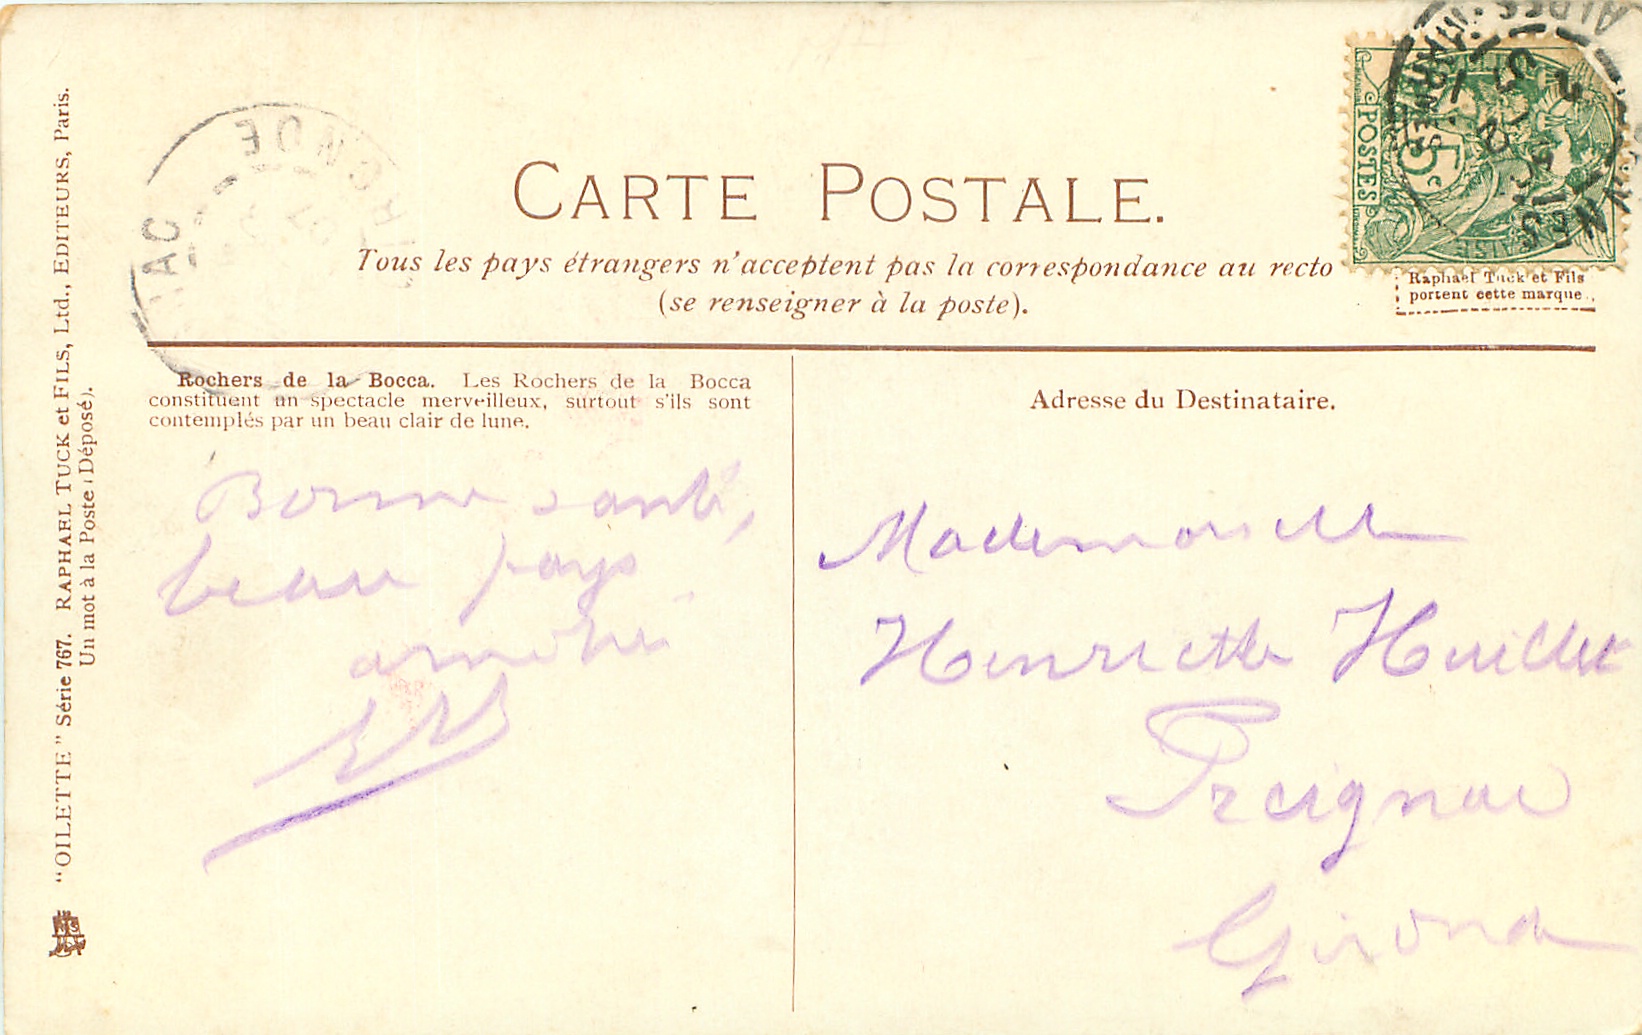 CARTE POSTALE.
Tous les pays étrangers n'acceptent pas la correspondance au recto
(se renseigner à la poste).
POSTES
5c
Raphael Tuck et Fils
portent cette marque.
Rochers de la Bocca. Les Rochers de la Bocca
constituent un spectacle merveilleux, surtout s'ils sont
contemplés par un beau clair de lune.
Bonne santé,
beau pays
Adresse du Destinataire.
Mademoiselle
Henriette Huillet
Preignac
Gironde
"OILETTE" Série 767. RAPHAEL TUCK et FILS, Ltd., EDITEURS, Paris.
Un mot à la Poste (Déposé).